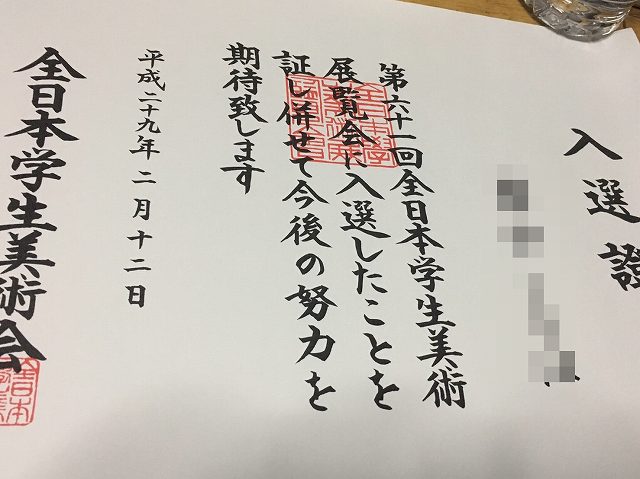 入選證
第六十一回全日本学生美術
展覧会に入選したことを
証し併せて今後の努力を
期待致します
平成二十九年二月十二日
全日本学生美術会